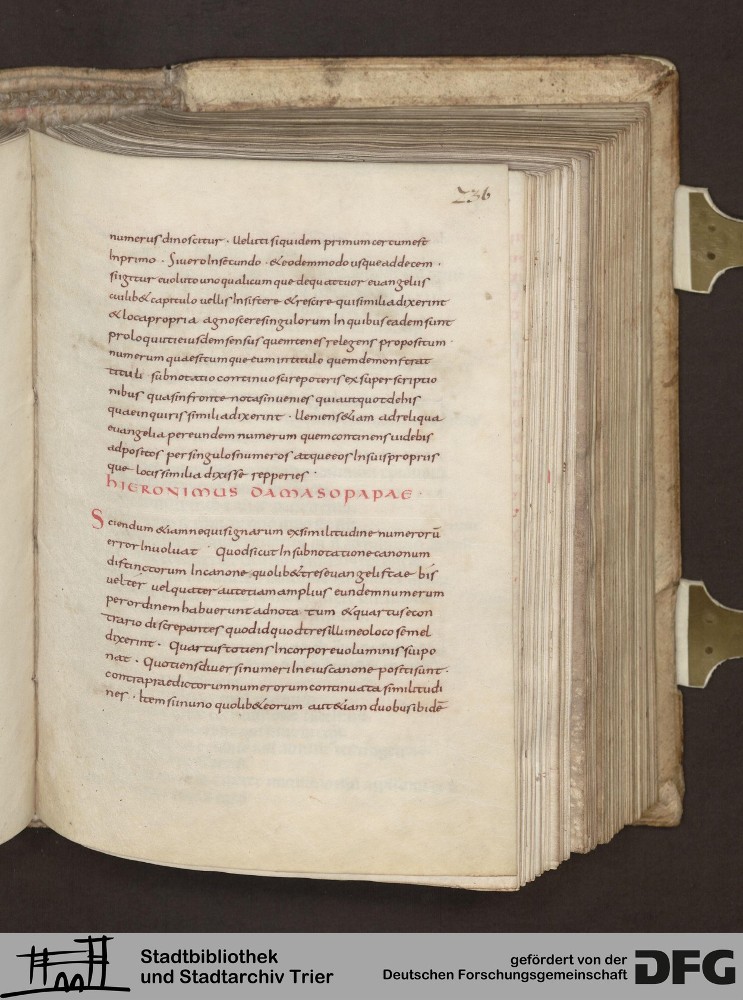 236
numerus dinoscitur · Ueluti siquidem primum certum est
In primo · Si uero In secundo · & eodem modo usque ad decem ·
si igitur euoluto uno qualicumque de quattuor euangeliis
cuilib& capitulo uellis Insistere & rescire qui similia dixerint
& loca propria agnoscere singulorum In quibus eadem sunt
proloquuti eiusdem sensus quem tenes relegens propositum ·
numerum quaesitumque eum in titulo quem demonstrat
tituli subnotatio continuo scire poteris ex superscriptio
nibus quas in fronte notas inuenies qui aut quot de his
quae inquiris similia dixerint · Ueniens &iam ad reliqua
euangelia per eundem numerum quem continens uidebis
adpositos per singulos numeros atque eos In suis propriis
que locis similia dixisse repperies ·
hIERONIMUS DAMASO PAPAE ·
Sciendum &iam nequis ignarum ex similitudine numerorū
error Inuoluat · Quod sicut In subnotatione canonum
distinctorum In canone quolib& tres euangelistae bis
uel ter uel quater aut etiam amplius eundem numerum
per ordinem habuerunt adnota tum & quartus econ
trario discrepantes quod id quod tres illi uneo loco semel
dixerint · Quartus totiens In corpore uoluminis sui po
nat · Quotiens diuersi numeri In eius canone positi sunt ·
contra praedictorum numerorum continuata similitudi
nes · Item si in uno quolib& eorum aut &iam duobus ibidē
Stadtbibliothek
und Stadtarchiv Trier
gefördert von der
Deutschen Forschungsgemeinschaft
DFG